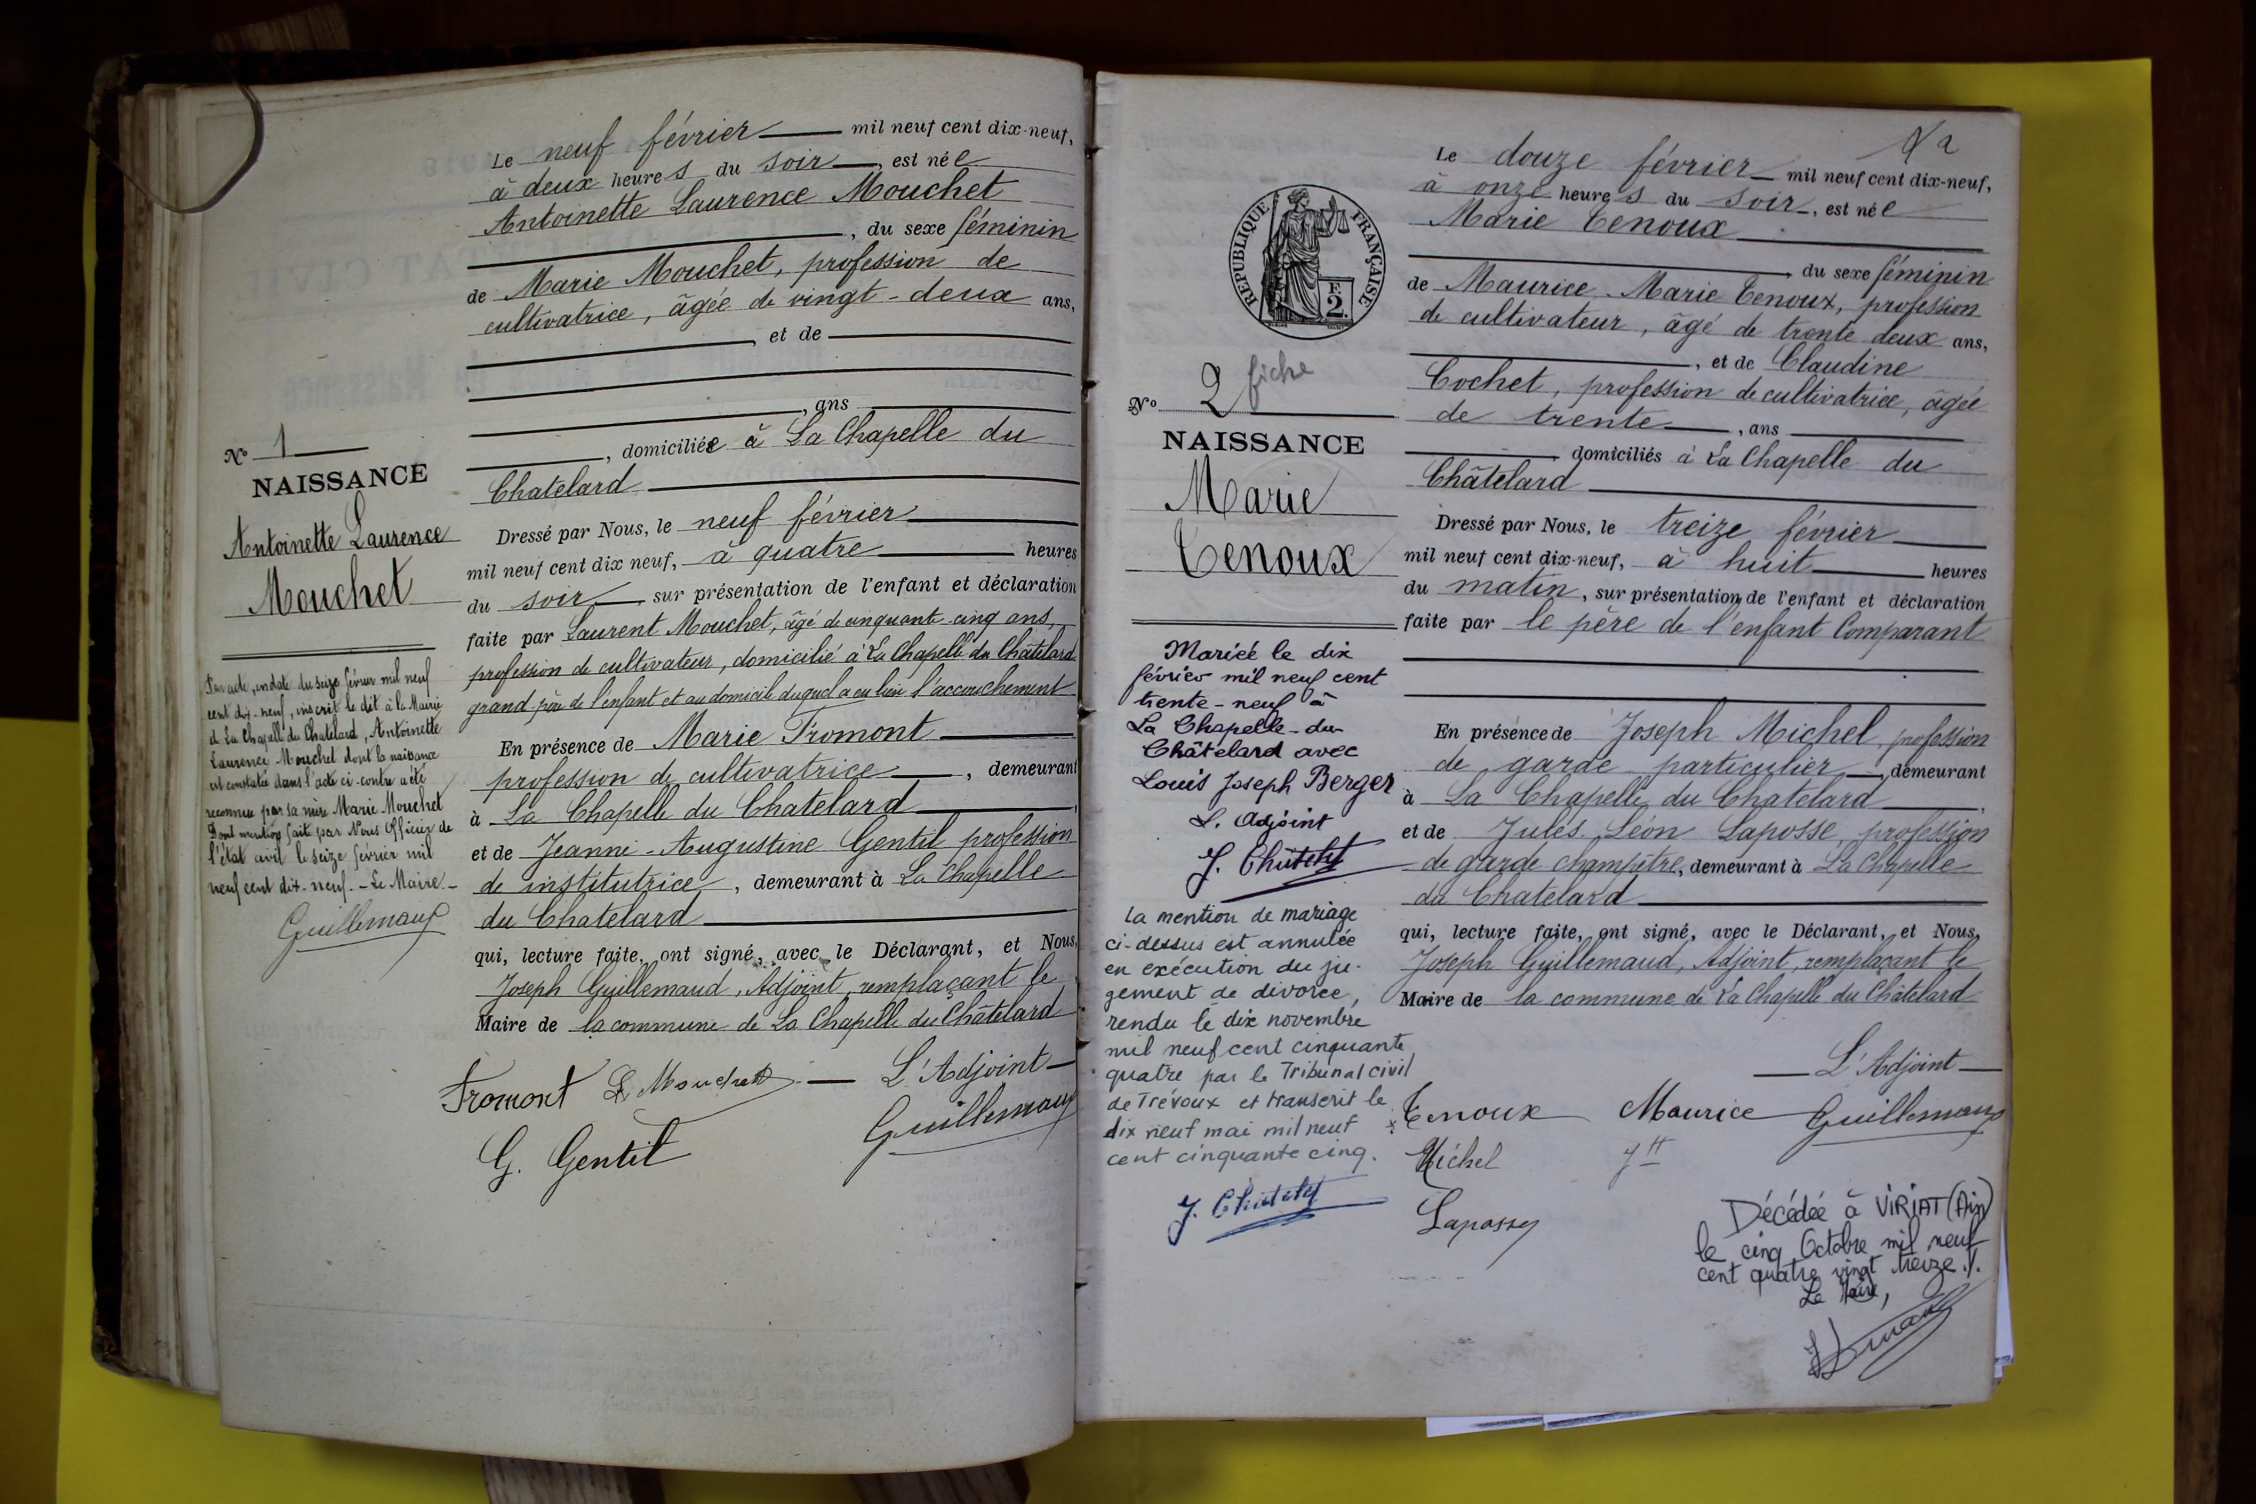 Le neuf février mil neuf cent dix-neuf,
à deux heures du soir, est née
Antoinette Laurence Mouchet
, du sexe féminin
de Marie Mouchet, profession de
cultivatrice, âgée de vingt-deux ans,
, et de
, ans
, domiciliée à La Chapelle du
Chatelard
Dressé par Nous, le neuf février
mil neuf cent dix neuf, à quatre heures
du soir, sur présentation de l'enfant et déclaration
faite par Laurent Mouchet, âgé de cinquante-cinq ans,
profession de cultivateur, domicilié à La Chapelle du Châtelard
grand-père de l'enfant et au domicile duquel a eu lieu l'accouchement
En présence de Marie Fromont
profession de cultivatrice, demeurant
à La Chapelle du Chatelard,
et de Jeanne-Augustine Gentil profession
de institutrice, demeurant à La Chapelle
du Chatelard
qui, lecture faite, ont signé, avec le Déclarant, et Nous,
Joseph Guillemaud, Adjoint, remplaçant le
Maire de la commune de La Chapelle du Châtelard
L'Adjoint
Fromont L Mouchet
Guillemaud
G. Gentil
No 1
NAISSANCE
Antoinette Laurence
Mouchet
Par acte, en date du seize février mil neuf
cent dix-neuf, inscrit le dit à la Mairie
de La Chapelle du Chatelard, Antoinette
Laurence Mouchet dont la naissance
est constatée dans l'acte ci-contre a été
reconnue par sa mère Marie Mouchet
Dont mention faite par Nous Officier de
l'état civil le seize février mil
neuf cent dix-neuf. - Le Maire -
Guillemaud
2
Le douze février mil neuf cent dix-neuf,
à onze heures du soir, est née
Marie Tenoux
, du sexe féminin
de Maurice-Marie Tenoux, profession
de cultivateur, âgé de trente deux ans,
, et de Claudine
Cochet, profession de cultivatrice, âgée
de trente, ans
domiciliés à La Chapelle du
Châtelard
Dressé par Nous, le treize février
mil neuf cent dix-neuf, à huit heures
du matin, sur présentation de l'enfant et déclaration
faite par le père de l'enfant Comparant
En présence de Joseph Michel, profession
de garde particulier, demeurant
à La Chapelle du Chatelard,
et de Jules Léon Laposse, profession
de garde champêtre, demeurant à La Chapelle
du Chatelard
qui, lecture faite, ont signé, avec le Déclarant, et Nous,
Joseph Guillemaud, Adjoint, remplaçant le
Maire de la commune de La Chapelle du Châtelard
L'Adjoint
Tenoux Maurice Guillemaud
Michel Jh
Laposse
RÉPUBLIQUE FRANÇAISE
F.
2.
No 2 fiche
NAISSANCE
Marie
Tenoux
Mariée le dix
février mil neuf cent
trente-neuf à
La Chapelle-du-
Châtelard avec
Louis Joseph Berger
L. Adjoint
La mention de mariage
ci-dessus est annulée
en exécution du ju-
gement de divorce,
rendu le dix novembre
mil neuf cent cinquante
quatre par le Tribunal civil
de Trévoux et transcrit le
dix neuf mai mil neuf
cent cinquante cinq.
Décédée à VIRIAT (Ain)
le cinq Octobre mil neuf
cent quatre vingt treize./.
Le Maire,